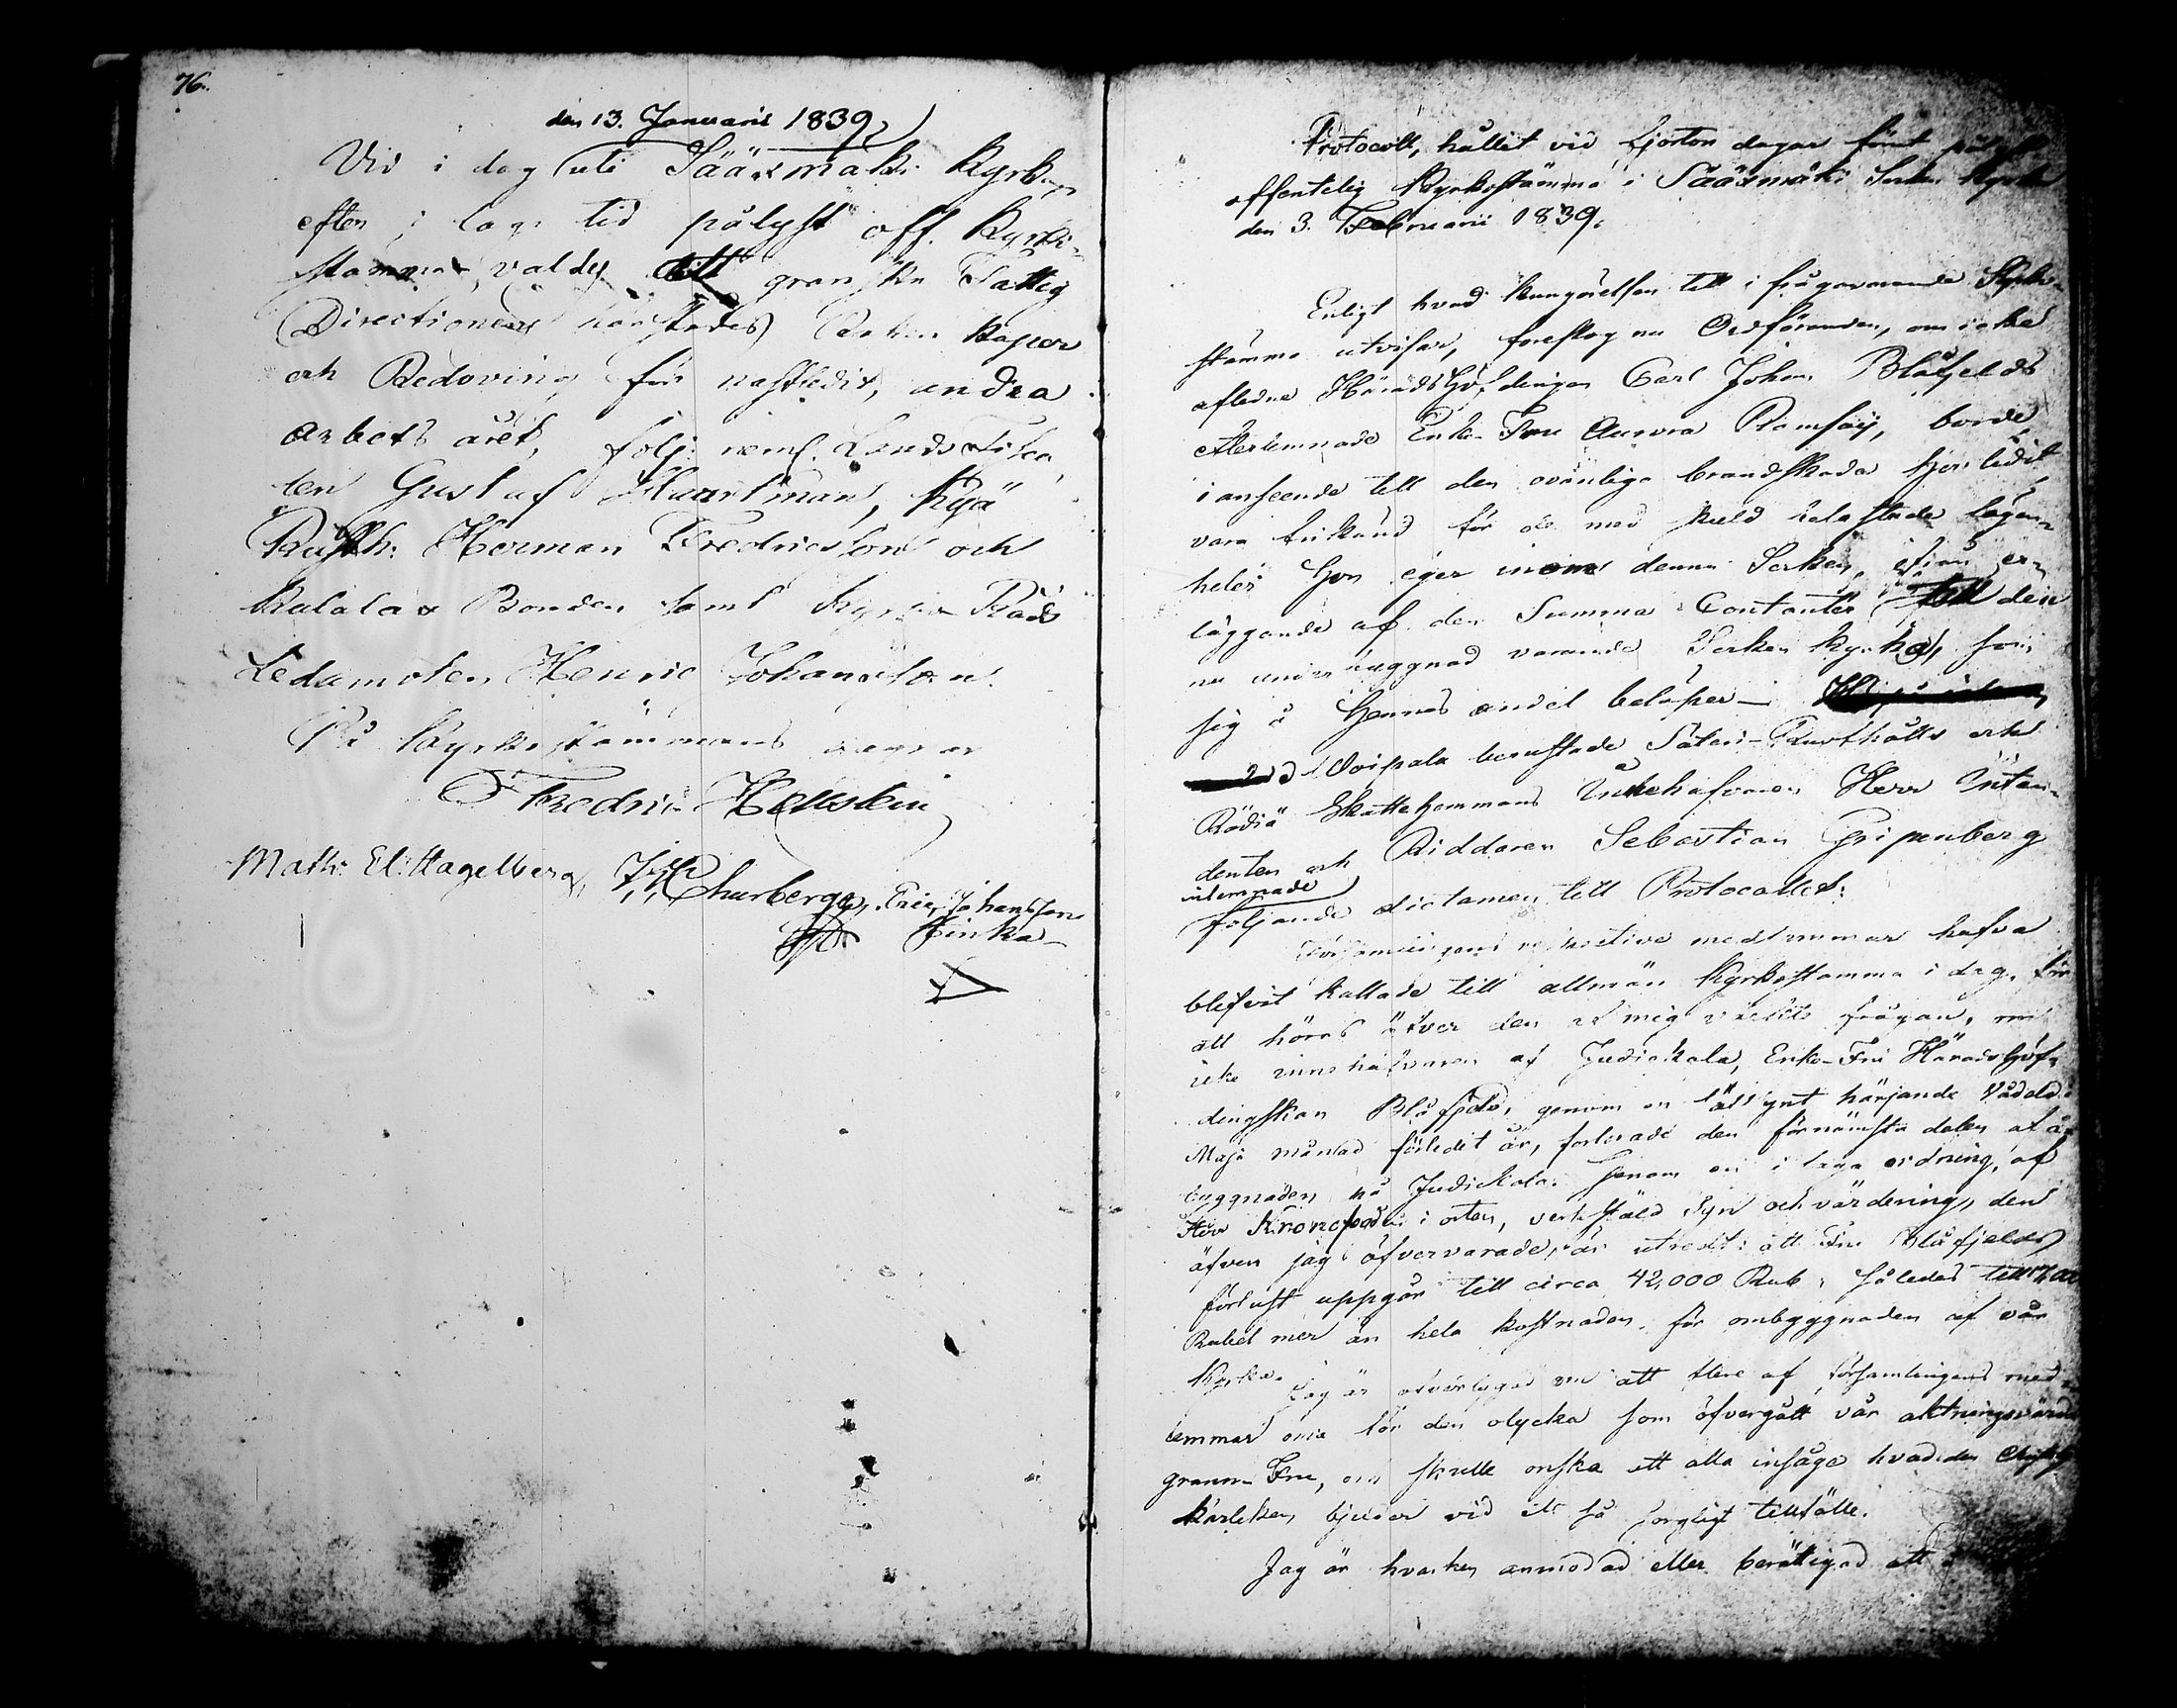 76.
den 13. Januarii 1839
Vid i dag uti Sääxmäki Kyrka,
efter i laga tid pålyst off. Kyrko-
stämma, valdes att granska Fattig
Directionens härstädes Räken kaper
och Redovinng för nästledit, andra
arbets året, följ: neml. Lands Fiska
len Gustaf Hvartman,
Rusth: Herman Fredricsson och
Kalalax Bonden samt Kyrko Råds
Ledamoten Henric Johansson.
På Kyrkostämmans vägnar
Fredric Hellstén
Math: El: Hagelberg, Churberg, Eric Johansson
Finka
Protocoll, hållit vid fjorton dagar förut pålyst
offentelig Kyrkostämma i Sääxmäki Socken Kyrka
den 3. Februarii 1839.
Enligt hvad kungörelsen till i fråga varande Kyrko-
stämma utvisar, föreslog nu Ordföranden, om icke
afledne Häradshöfdingen Carl Johan Blåfjelds
efterlemnade Enke-Fru Aurora Ramsay, borde
i anseende till den ovänliga brandskada hon lidit,
vara frikänd för de med skuld belastade lägen-
heter hon eger inom denna Socken, ifrån er-
läggande af den Summa Contanter till den
nu under byggnad varande Socken kyrka, som
sig å hennes andel belöper
Voipala berustade Säteri-Rusthålls och
Rödiä Skattehemmans Innehafvaren Herr Inten-
denten och Riddaren Sebastian Gripenberg
inlemnade
följande dictamen till Protocollet:
Församlingens respective medlemmar hafva
blifvit kallade till allmän Kyrkostämma i dag, för
att höras öfver den af mig väckta frågan, om
icke innehafvaren af Judickala, Enke-Fru Häradshöf-
dingskan Blåfjeld, genom en häldsynt härjande Vådeld i
Maji månad förledit år, förlorade den förnämsta delen af å-
byggnaden på Judickala. Genom en i laga ordning, af
Herr Kronofogden i orten, verkstäld Syn och värdering, den
äfven jag öfvervarade, är utredt: att Fru Blåfjelds
förlust uppgår till circa 42,000 Rub. således till
Rubel mer än hela kostnaden för ombyggnaden af vår
Kyrka.
Jag är öfvertygad om att flere af församlingens med-
lemmar ömma för den olycka som öfvergått vår aktningsvärda
granne Fru, och skulle önska att alla insåge hvad den Christ
kärleken bjuder vid ett så sorgligt tillfälle.
Jag är hvarken anmodad eller berättigad att